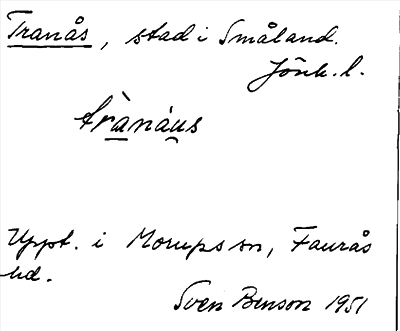 Tranås, stad i Småland.
Jönk. l.
trànáus
Uppt. i Morups sn, Faurås
hd.
Sven Benson 1951